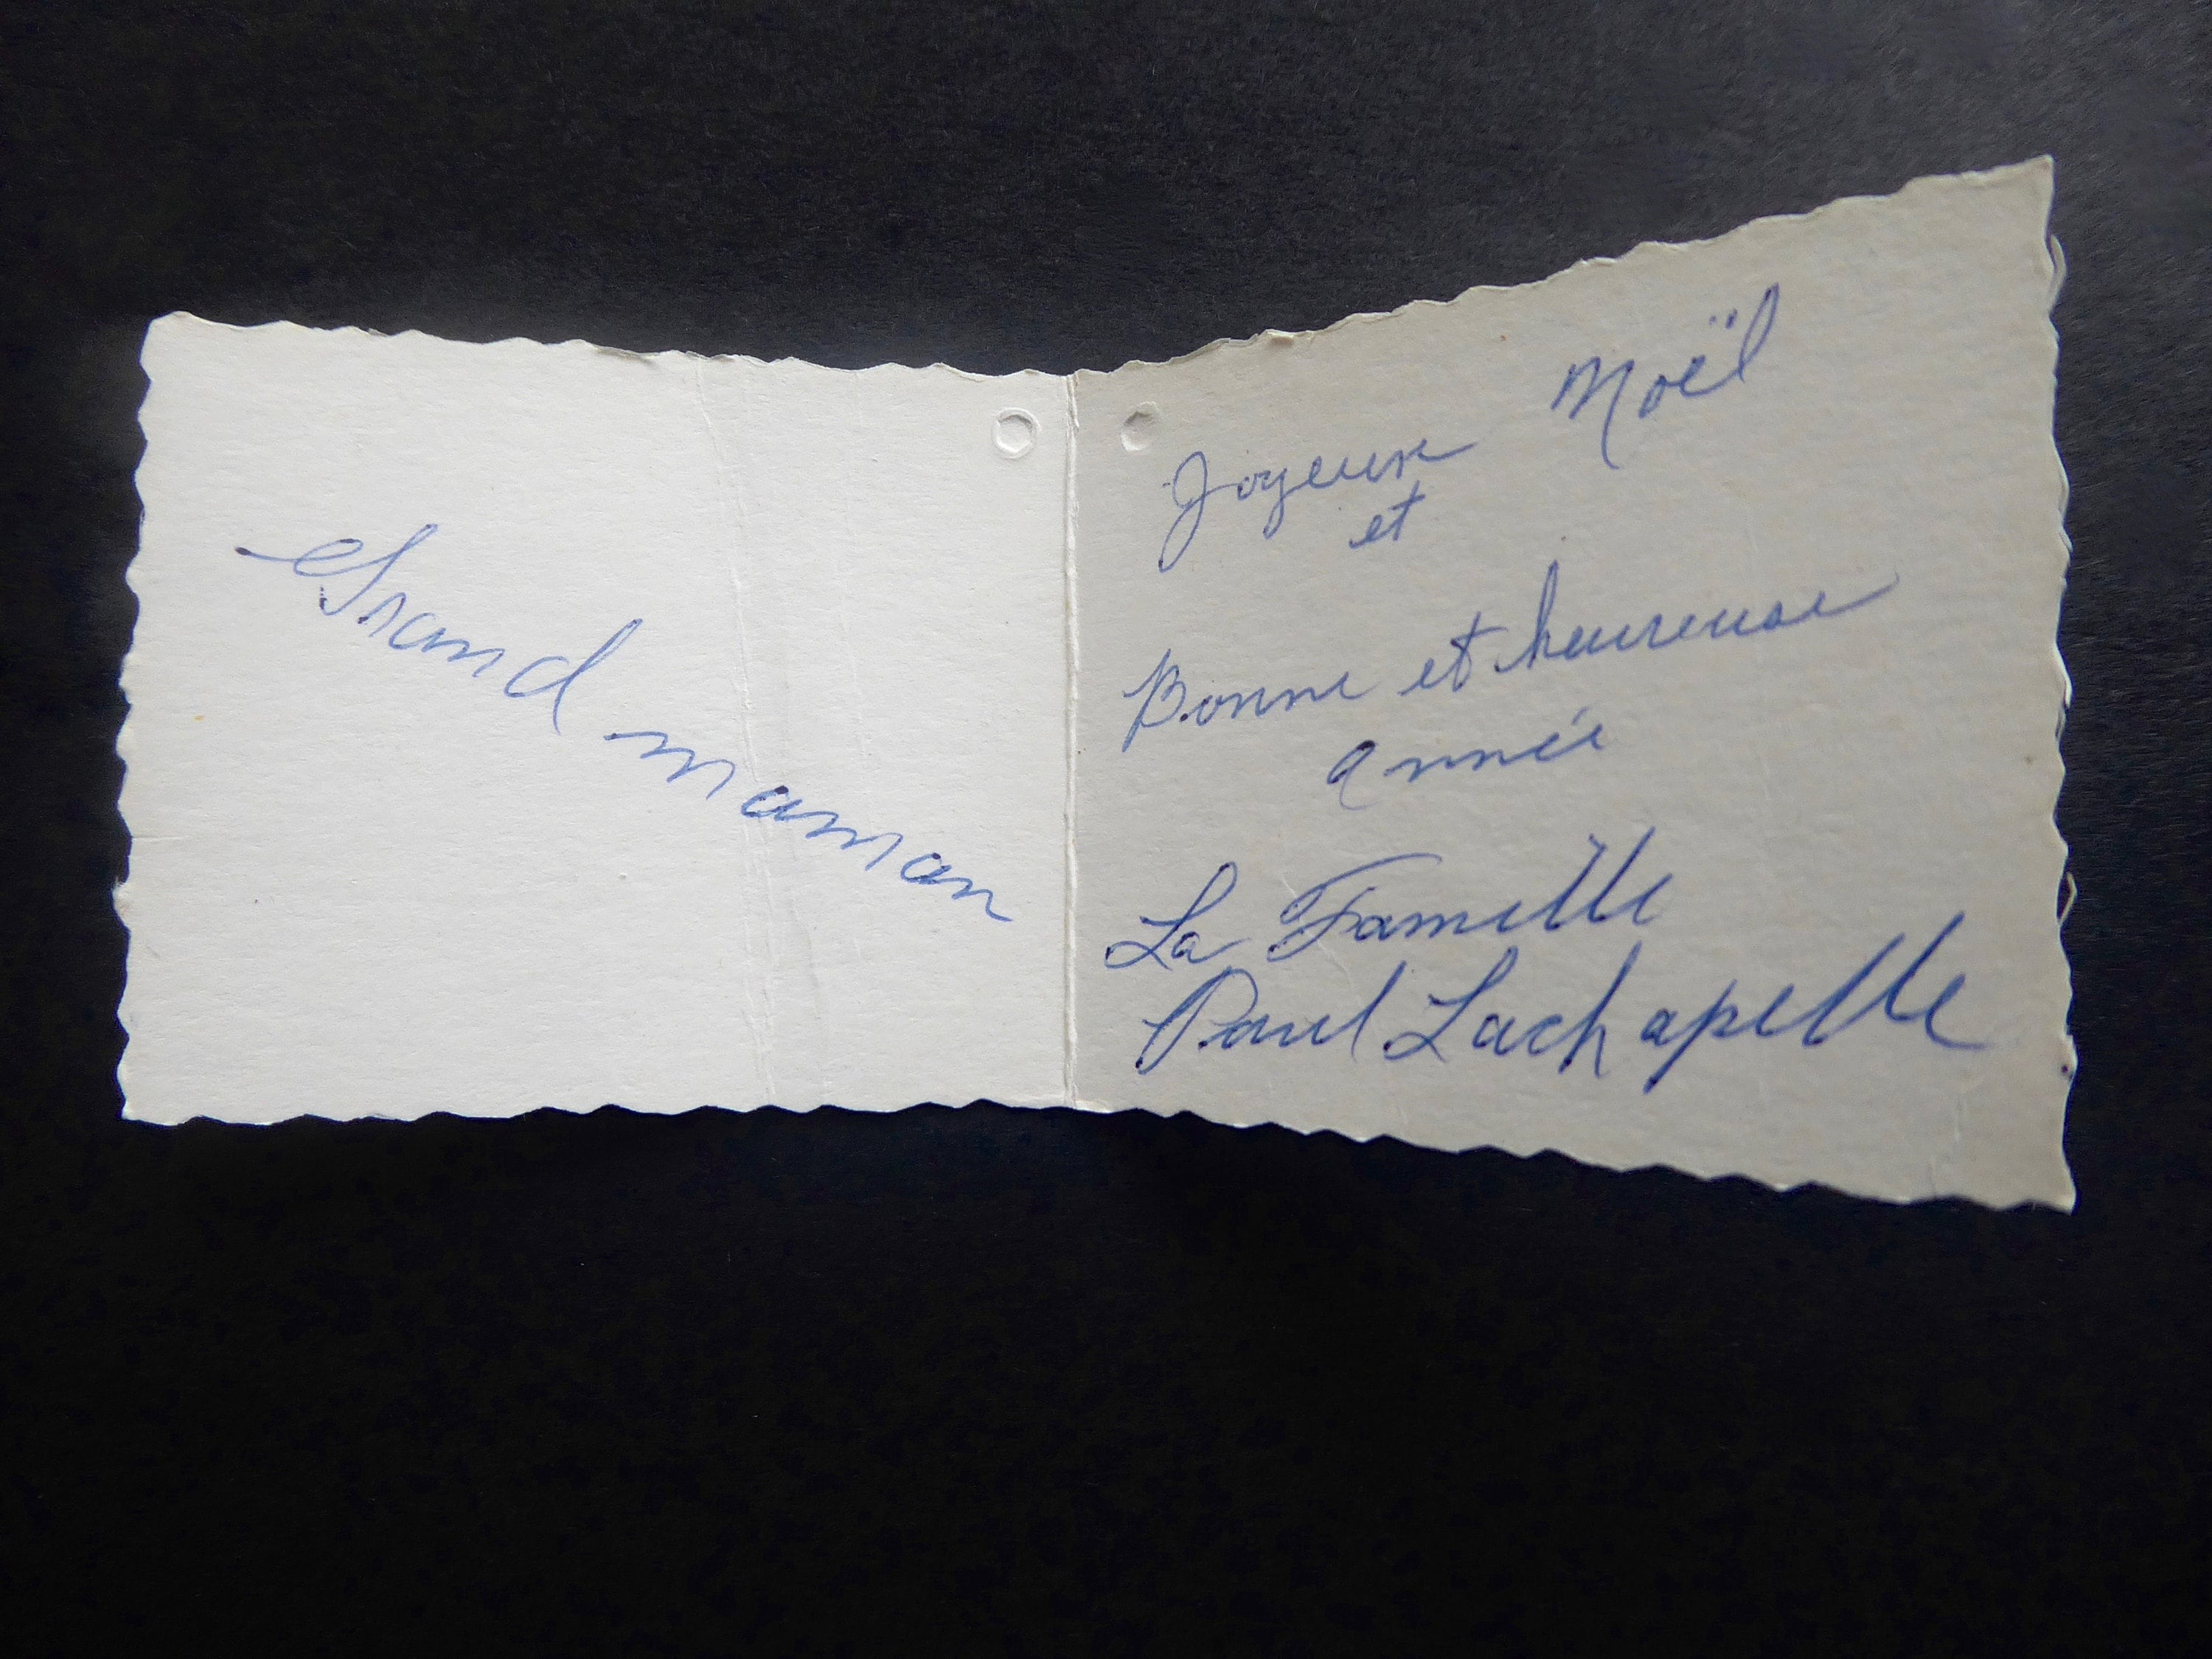 Grand maman
Joyeux Noël
et
Bonne et heureuse
année
La Famille
Paul Lachapelle